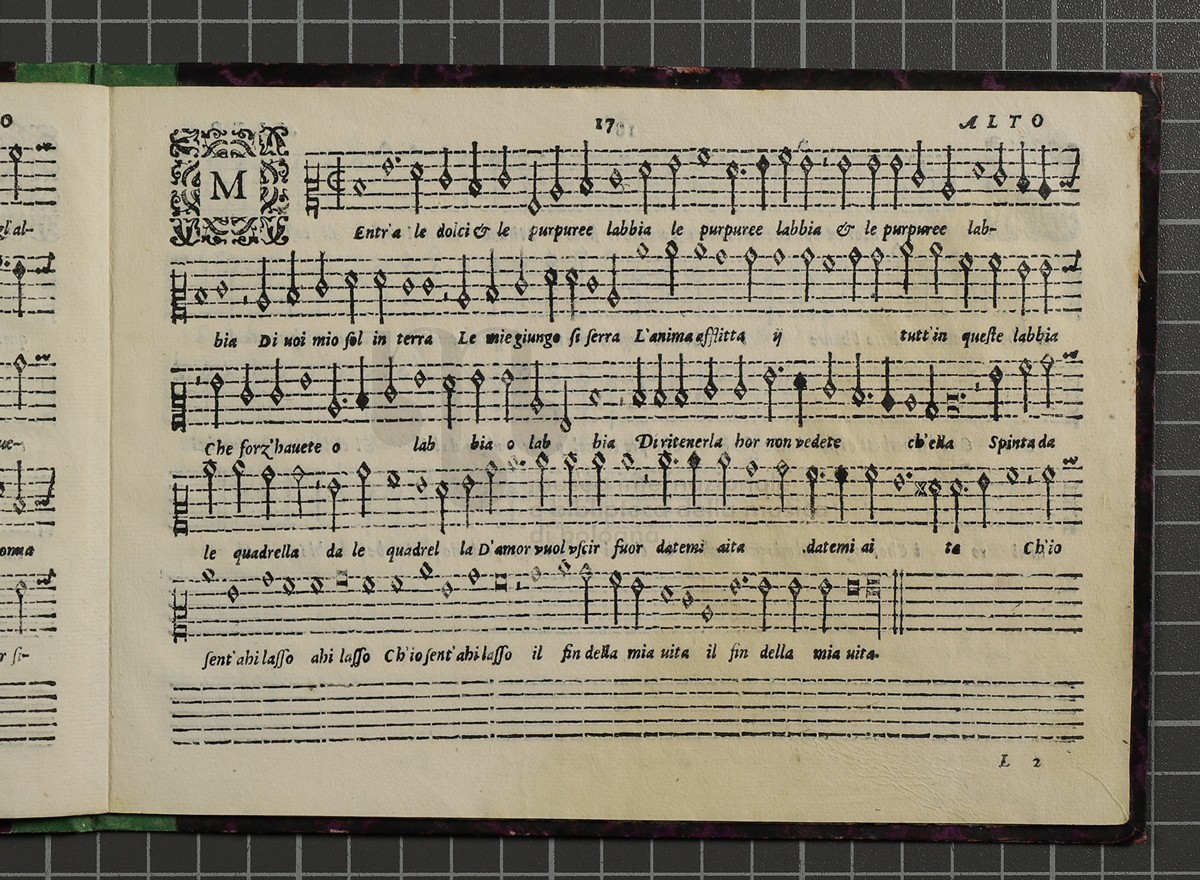 17
ALTO
M
Entr'a le dolci & le purpuree labbia le purpuree labbia & le purpuree lab-
bia Di uoi mio sol in terra Le mie giunge si serra L'anima afflitta ij tutt'in queste labbia
Che forz'hauete o lab bia o lab bia Di ritenerla hor non vedete ch'ella Spinta da
le quadrella da le quadrel la D'amor vuol vscir fuor datemi aita datemi ai ta Ch'io
sent'ahi lasso ahi lasso Ch'io sent'ahi lasso il fin della mia uita il fin della mia uita.
L 2